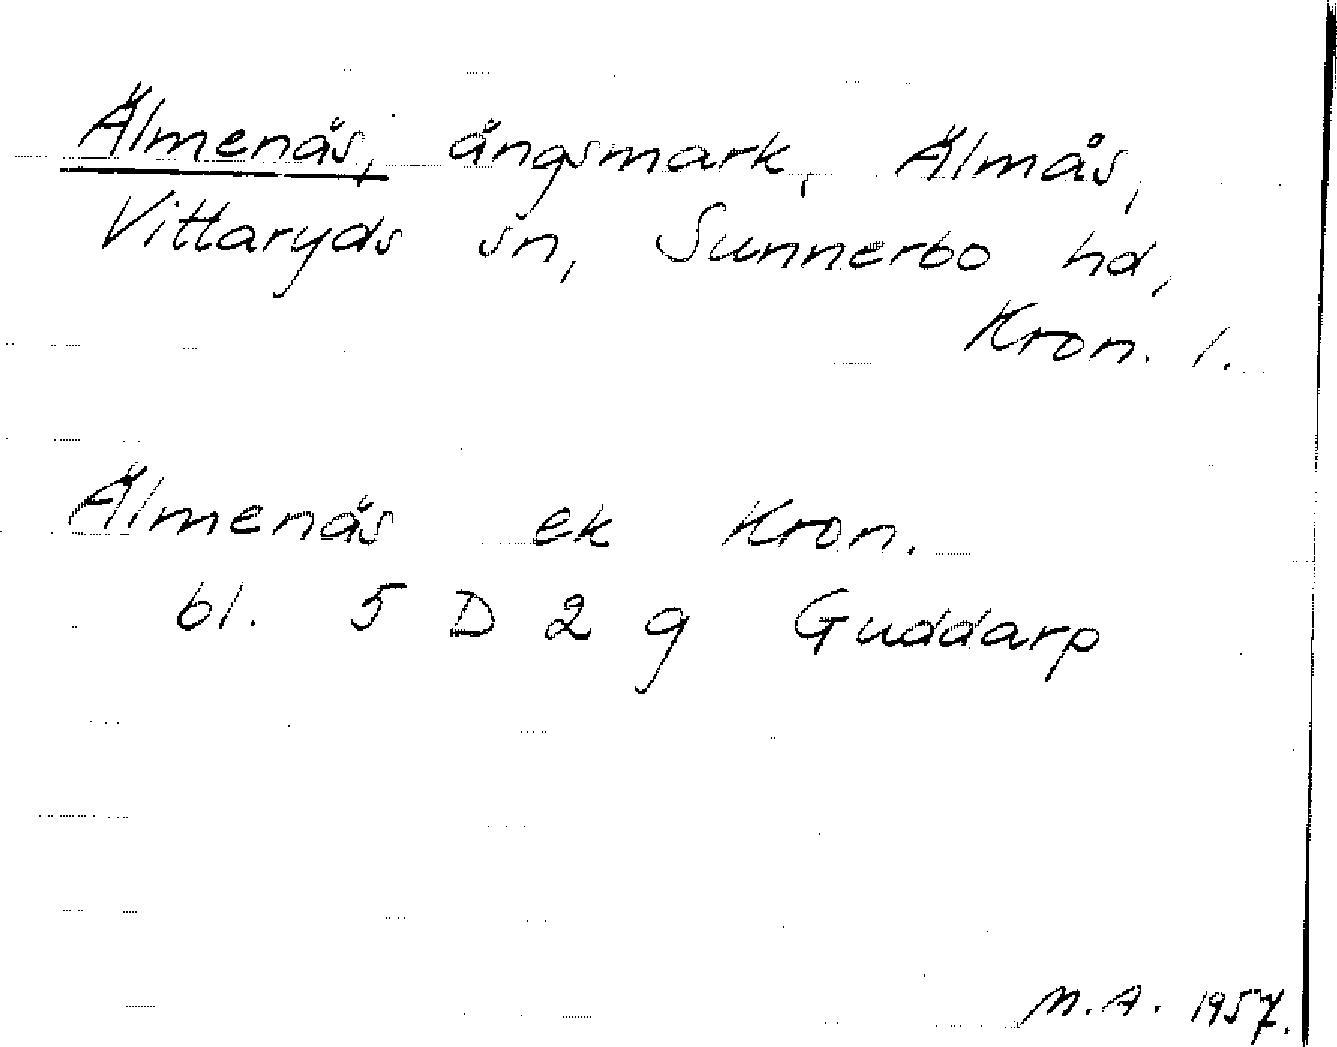 Älmenäs, ängsmark, Älmås,
Vittaryds sn, Sunnerbo hd,
Kron. l.
Älmenäs ek Kron.
bl. 5 D 2 g Guddarp
M.A. 1957.